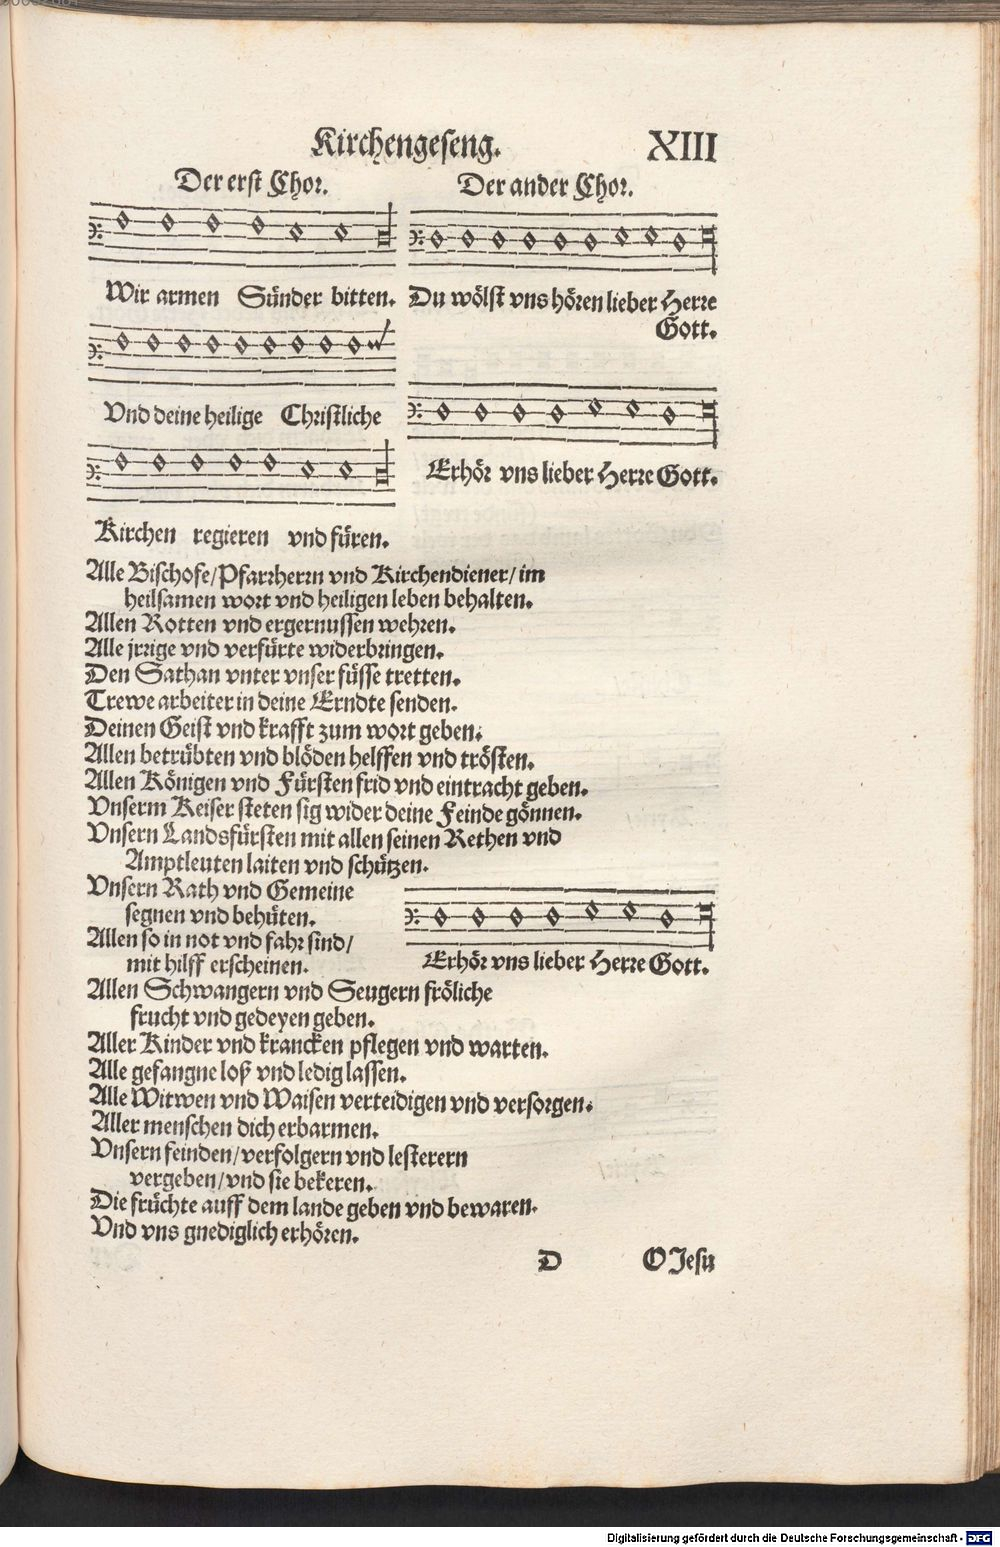 Kirchengeseng. XIII
Der erst Chor. Der ander Chor.
Wir armen Sünder bitten. Du wölst vns hören lieber Herre
Gott.
Vnd deine heilige Christliche
Erhör vns lieber Herre Gott.
Kirchen regieren vnd füren.
Alle Bischofe/Pfarrherrn vnd Kirchendiener/im
heilsamen wort vnd heiligen leben behalten.
Allen Rotten vnd ergernussen wehren.
Alle jrrige vnd verfürte widerbringen.
Den Sathan vnter vnser füsse tretten.
Trewe arbeiter in deine Erndte senden.
Deinen Geist vnd krafft zum wort geben.
Allen betrübten vnd blöden helffen vnd trösten.
Allen Königen vnd Fürsten frid vnd eintracht geben.
Vnserm Keiser steten sig wider deine Feinde gönnen.
Vnsern Landsfürsten mit allen seinen Rethen vnd
Amptleuten laiten vnd schützen.
Vnsern Rath vnd Gemeine
segnen vnd behüten.
Allen so in not vnd fahr sind/
mit hilff erscheinen.
Erhör vns lieber Herre Gott.
Allen Schwangern vnd Seugern fröliche
frucht vnd gedeyen geben.
Aller Kinder vnd krancken pflegen vnd warten.
Alle gefangne loß vnd ledig lassen.
Alle Witwen vnd Waisen verteidigen vnd versorgen.
Aller menschen dich erbarmen.
Vnsern feinden/verfolgern vnd lesterern
vergeben/vnd sie bekeren.
Die früchte auff dem lande geben vnd bewaren.
Vnd vns gnediglich erhören.
D O Jesu
Digitalisierung gefördert durch die Deutsche Forschungsgemeinschaft - DFG